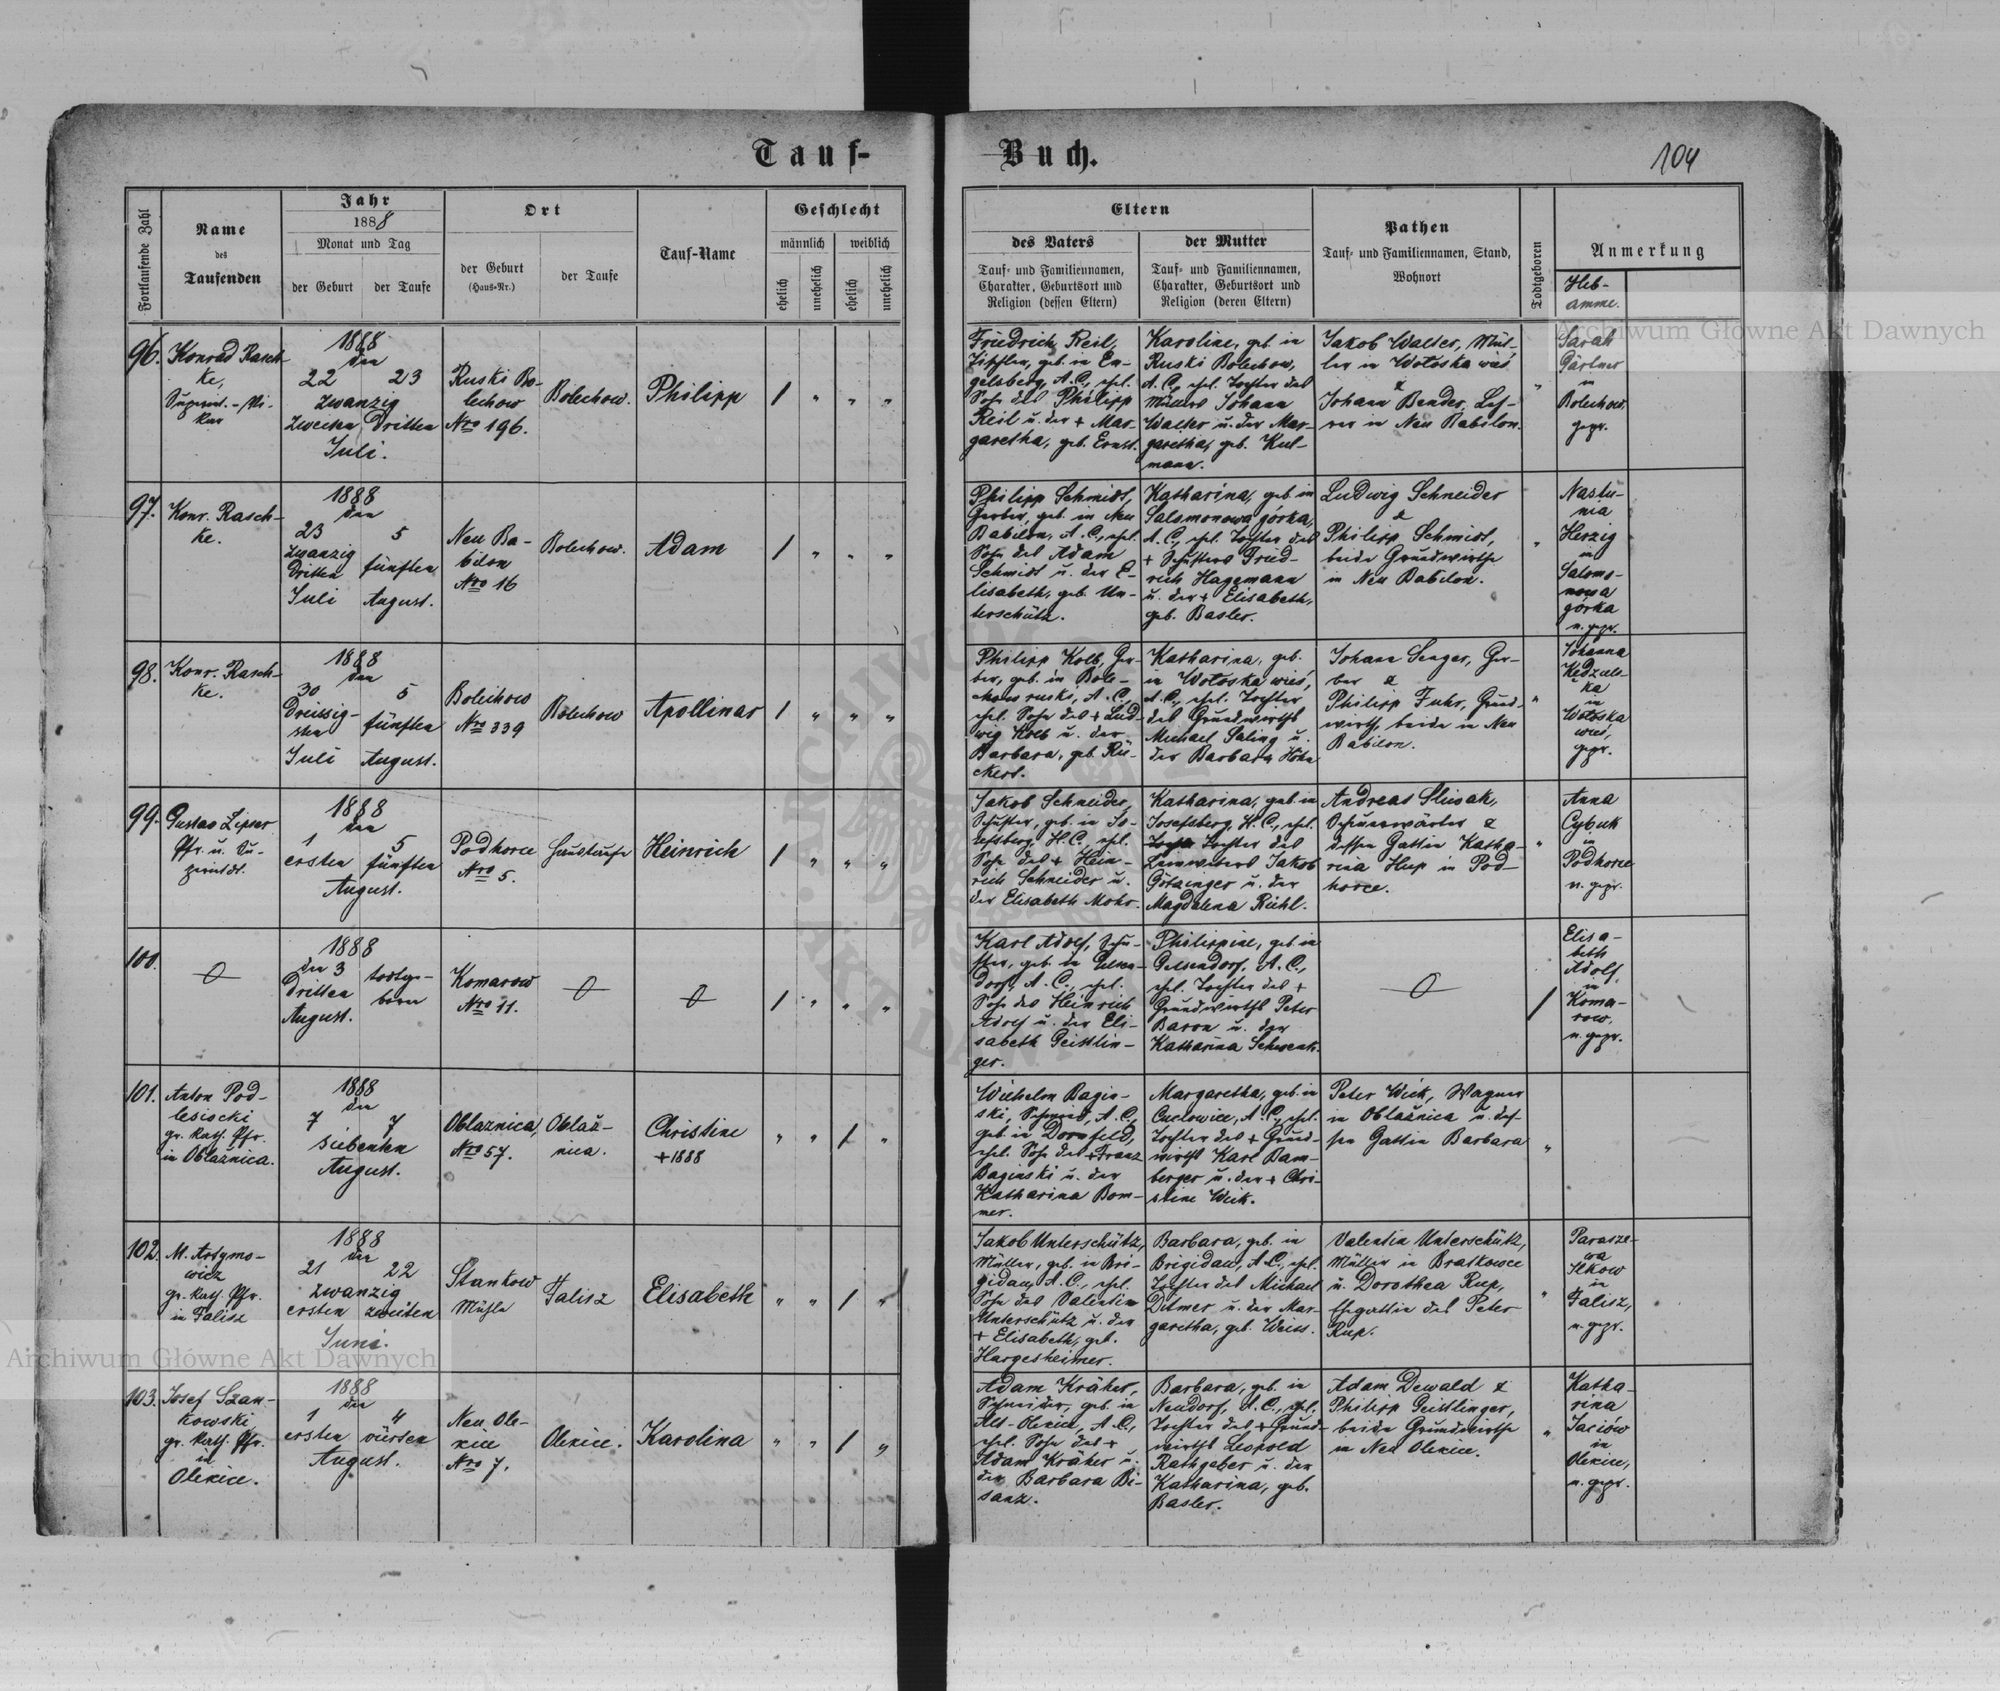 Tauf-
Buch.
104
Fortlaufende Zahl
Name
des
Taufenden
Jahr
1888
Monat und Tag
der Geburt
der Taufe
Ort
der Geburt
(Haus-Nr.)
der Taufe
Tauf-Name
Geschlecht
männlich
weiblich
ehelich
unehelich
ehelich
unehelich
Eltern
des Vaters
Tauf- und Familiennamen,
Charakter, Geburtsort und
Religion (dessen Eltern)
der Mutter
Tauf- und Familiennamen,
Charakter, Geburtsort und
Religion (deren Eltern)
Pathen
Tauf- und Familiennamen, Stand,
Wohnort
Todtgeboren
Anmerkung
Heb-
amme.
96.
Konrad Rasch-
ke,
Superint.-Vi-
kar
1888
den
22 23
zwanzig
zweiten Dritten
Juli.
Ruski Bo-
lechow
Nro 196.
Bolechow.
Philipp
1 " " "
Friedrich Keil,
geb. in En-
gelsberg, A.C., ehel.
Sohn des Philipp
Keil u. der + Mar-
garetha, geb. Ernst.
Karoline, geb. in
Ruski Bolechow,
A.C., ehel. Tochter des
Müllers Johann
Walter u. der Mar-
garetha, geb. Kul-
mann.
Jakob Walter, Mül-
ler in Wołoska wieś
&
Johann Bender, Leh-
rer in Neu Babilon.
"
Sarah
Gärtner
in
Bolechow,
gepr.
97.
Konr. Rasch-
ke.
1888
den
23 5
zwanzig
Dritten fünften
Juli August.
Neu Ba-
bilon
Nro 16
Bolechow.
Adam
1 " " "
Philipp Schmidt,
Gerber, geb. in Neu
Babilon, A.C., ehel.
Sohn des Adam
Schmidt u. der E-
lisabeth, geb. Un-
terschütz.
Katharina, geb. in
Salamonowa górka,
A.C., ehel. Tochter des
+ Schusters Fried-
rich Hagemann
u. der + Elisabeth,
geb. Basler.
Ludwig Schneider
&
Philipp Schmidt,
beide Grundwirthe
in Neu Babilon.
"
Nastu-
nia
Herzig
in
Salomo-
nowa
górka
n. gepr.
98.
Konr. Rasch-
ke.
1888
den
30 5
Dreissig-
sten fünften
Juli August.
Bolechow
Nro 339
Bolechow
Apollinar
1 " " "
Philipp Kolb, Ger-
ber, geb. in Bole-
chow ruski, A.C.,
ehel. Sohn des + Lud-
wig Kolb u. der
Barbara, geb. Rü-
ckert.
Katharina, geb.
in Wołoska wieś,
A.C., ehel. Tochter
des Grundwirths
Michael Saling u.
der Barbara Höhn
Johann Senger, Ger-
ber &
Philipp Fuhr, Grund-
wirth, beide in Neu
Babilon.
"
Johanna
ka
in
Wołoska
wieś,
gepr.
99.
Gustav Lipser
Pfr. u. Su-
perintdt.
1888
den
1 5
ersten fünften
August.
Podhorce
Nro 5.
Haustaufe
Heinrich
1 " " "
Jakob Schneider,
Schuster, geb. in Jo-
sefsberg, H.C., ehel.
Sohn des + Hein-
rich Schneider u.
der Elisabeth Mohr.
Katharina, geb. in
Josefsberg, H.C., ehel.
Tochter des
Leinwebers Jakob
Götzinger u. der
Magdalena Rühl.
Andreas Slusak,
&
dessen Gattin Katha-
rina Hup in Pod-
horce.
"
Anna
Cybuk
in
Podhorce
n. gepr.
100.
1888
den 3
Dritten todtge-
August. born
Komarow
Nro 11.
1 " " "
Karl Adolf, Schu-
ster, geb. in Gelsen-
dorf, A.C., ehel.
Sohn des Heinrich
Adolf u. der Eli-
sabeth Geistlin-
ger.
Philippine, geb. in
Gelsendorf, A.C.,
ehel. Tochter des +
Grundwirths Peter
Baron u. der
Katharina Schwenk.
1
Elisa-
beth
Adolf,
in
Koma-
row,
n. gepr.
101.
Anton Pod-
lesiecki
gr. kath. Pfr.
in Oblaźnica.
1888
den
7 7
siebenten
August.
Oblaznica,
Nro 57.
Oblaź-
nica.
Christine
+1888
" " 1 "
Wilhelm Bagin-
ski, Schmied, A.C.,
geb. in Dornfeld,
ehel. Sohn des + Franz
Baginski u. der
Katharina Bom-
mer.
Margaretha, geb. in
Cucłowice, A.C., ehel.
Tochter des + Grund-
wirths Karl Bam-
berger u. der + Chri-
stine Weik.
Peter Wick, Wagner
in Oblaźnica u. des-
sen Gattin Barbara
"
102.
M. Artymo-
wicz
gr. kath. Pfr.
in Falisz
1888
den
21 22
zwanzig
ersten zweiten
Juni.
Stankow
Mühle
Falisz
Elisabeth
" " 1 "
Jakob Unterschütz,
Müller, geb. in Bri-
gidau, A.C., ehel.
Sohn des Valentin
Unterschütz u. der
+ Elisabeth, geb.
Hargesheimer.
Barbara, geb. in
Brigidau, A.C., ehel.
Tochter des Michael
Ditmer u. der Mar-
garetha, geb. Weiss.
Valentin Unterschütz,
Müller in Bratkowce
u. Dorothea Rup,
Ehegattin des Peter
Rup.
"
Parasze-
wa
Ilkow
in
Falisz,
n. gepr.
103.
Josef Szan-
kowski
gr. kath. Pfr.
in
Olexice.
1888
den
1 4
ersten vierten
August.
Neu Ole-
xice
Nro 7.
Olexice.
Karolina
" " 1 "
Adam Kräher,
Schneider, geb. in
Alt-Olexice, A.C.,
ehel. Sohn des +
Adam Kräher u.
der Barbara Bi-
sanz.
Barbara, geb. in
Neudorf, A.C., ehel.
Tochter des + Grund-
wirths Leopold
Rathgeber u. der
Katharina, geb.
Basler.
Adam Dewald &
Philipp Geistlinger,
beide Grundwirthe
in Neu Olexice.
"
Katha-
rina
Jaciów
in
Olexice,
n. gepr.
Archiwum Główne Akt Dawnych
Archiwum Główne Akt Dawnych